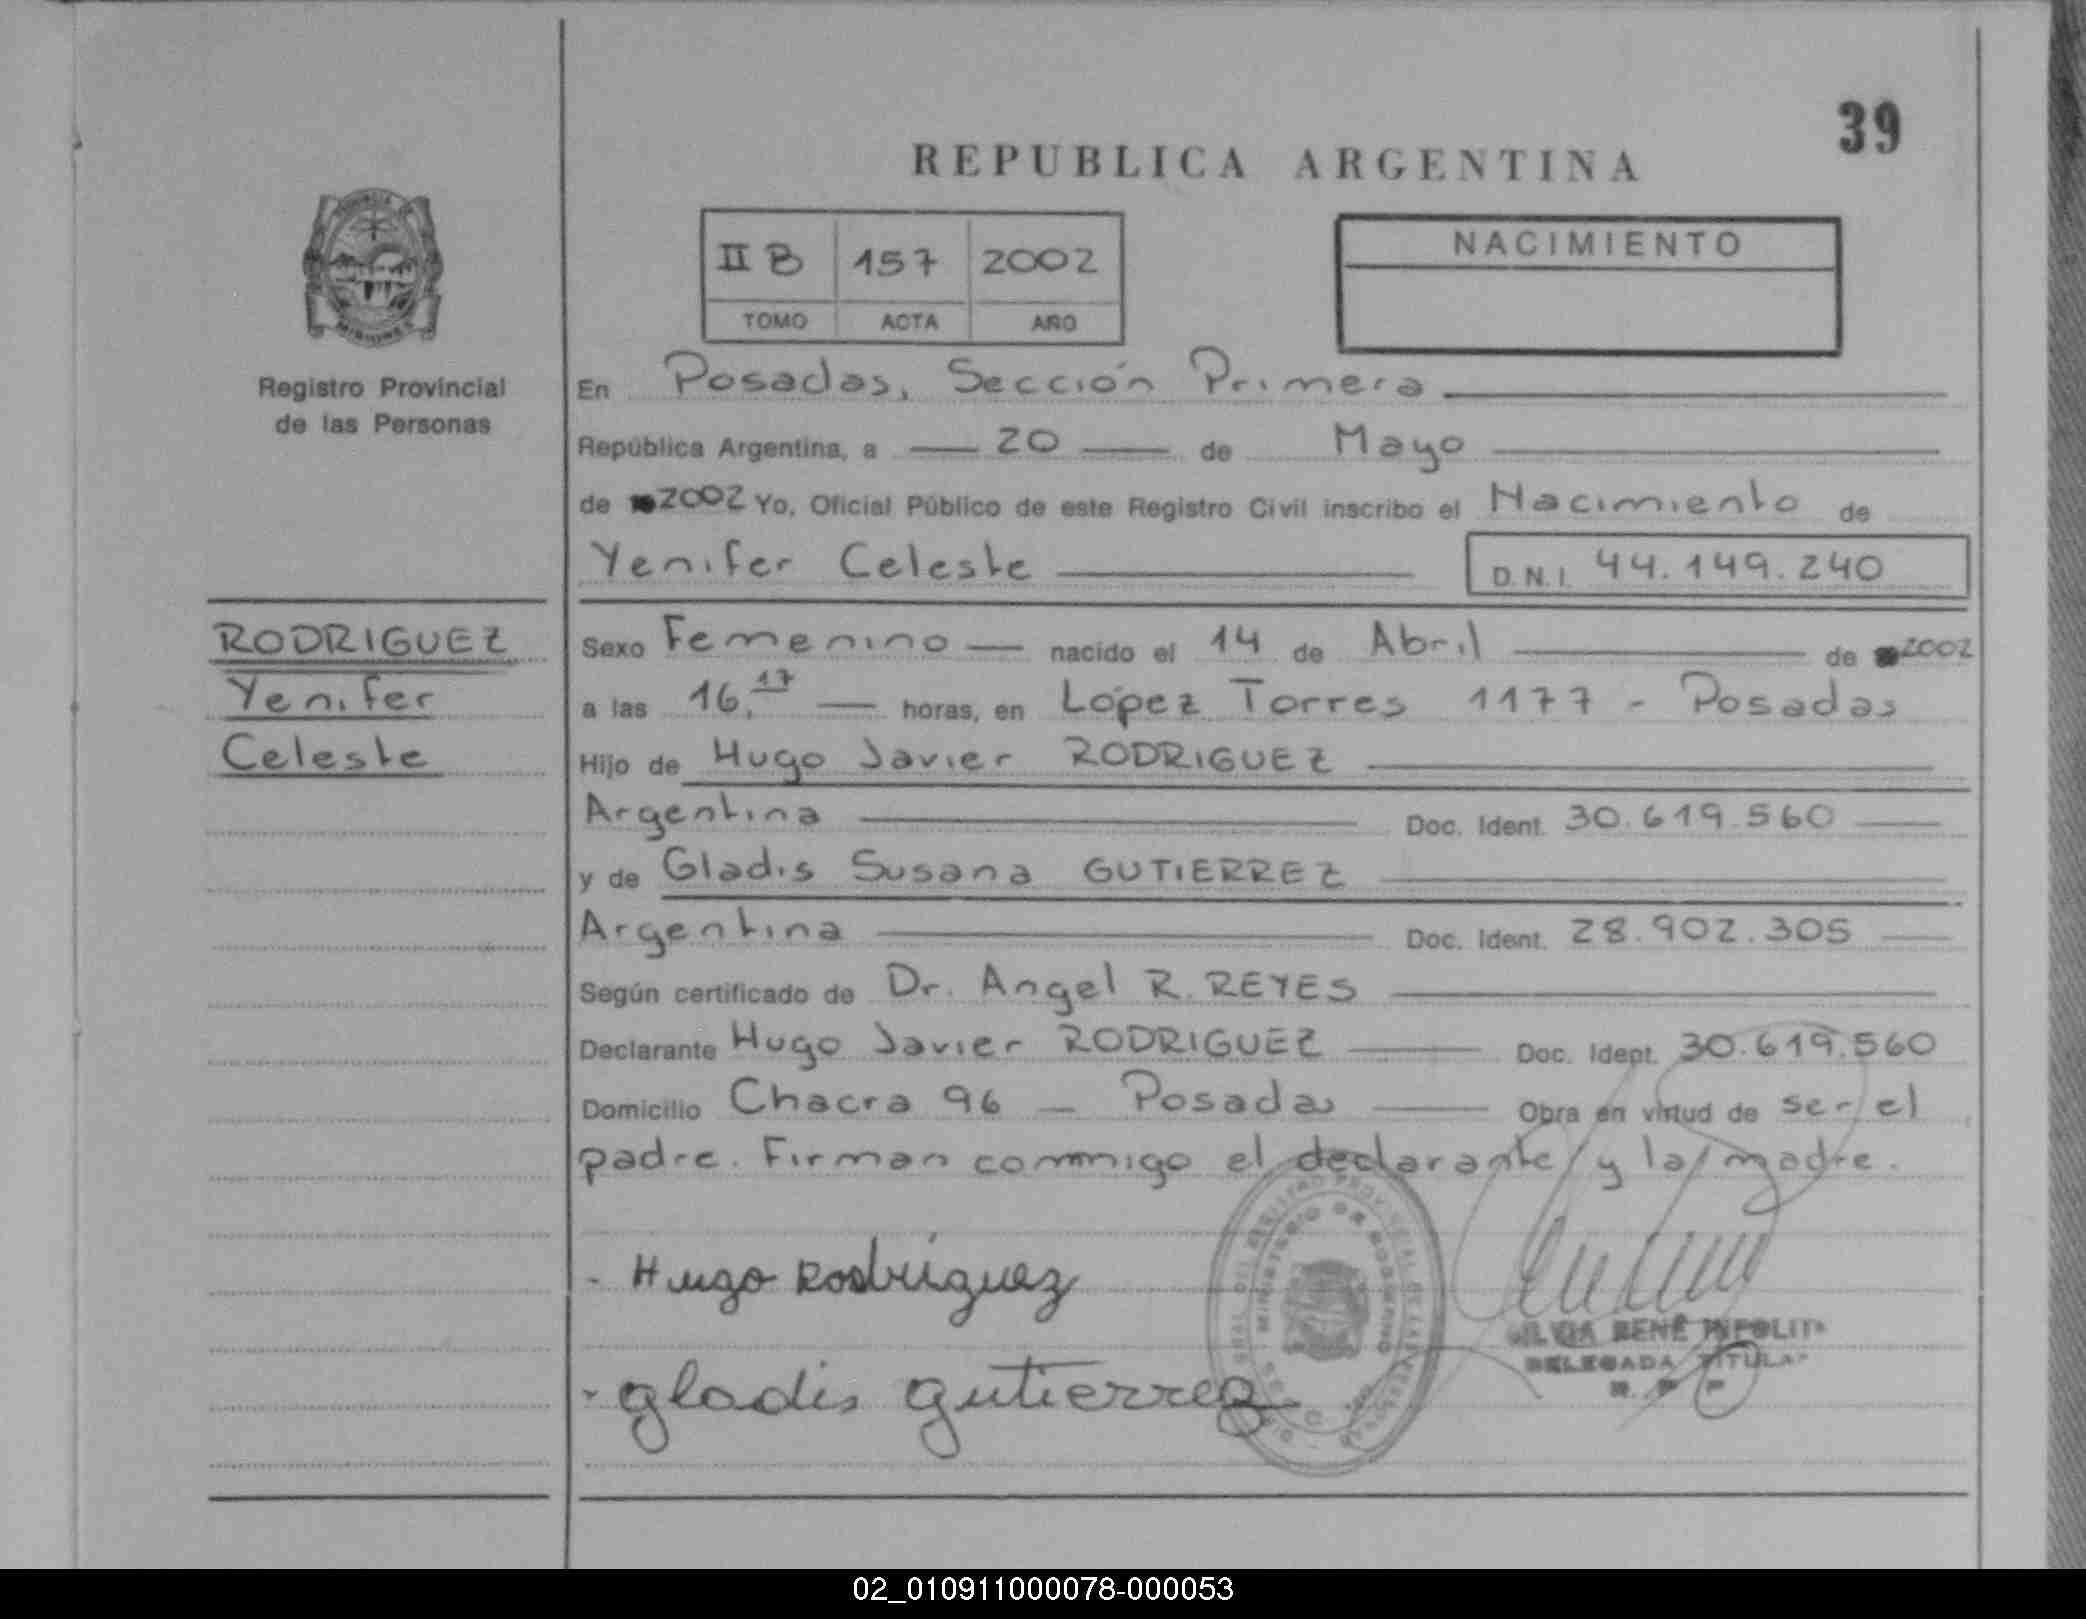 39
REPUBLICA ARGENTINA
II B 157 2002
TOMO ACTA AÑO
NACIMIENTO
MISIONES
Registro Provincial
de las Personas
RODRIGUEZ
Yenifer
Celeste
En Posadas, Sección Primera
República Argentina, a 20 de Mayo
de 2002 Yo, Oficial Público de este Registro Civil inscribo el Nacimiento de
Yenifer Celeste D.N.I. 44.149.240
Sexo Femenino nacido el 14 de Abril de 2002
a las 16.17 horas, en López Torres 1177 - Posadas
Hijo de Hugo Javier RODRIGUEZ
Argentina Doc. Ident. 30.619.560
y de Gladis Susana GUTIERREZ
Argentina Doc. Ident. 28.902.305
Según certificado de Dr. Angel R. REYES
Declarante Hugo Javier RODRIGUEZ Doc. Ident. 30.619.560
Domicilio Chacra 96 - Posadas Obra en virtud de ser el
padre. Firman conmigo el declarante y la madre.
- Hugo Rodríguez
- gladis gutierrez
MINISTERIO DE GOBIERNO
RENÉ
DELEGADA TITULAR
02_010911000078-000053